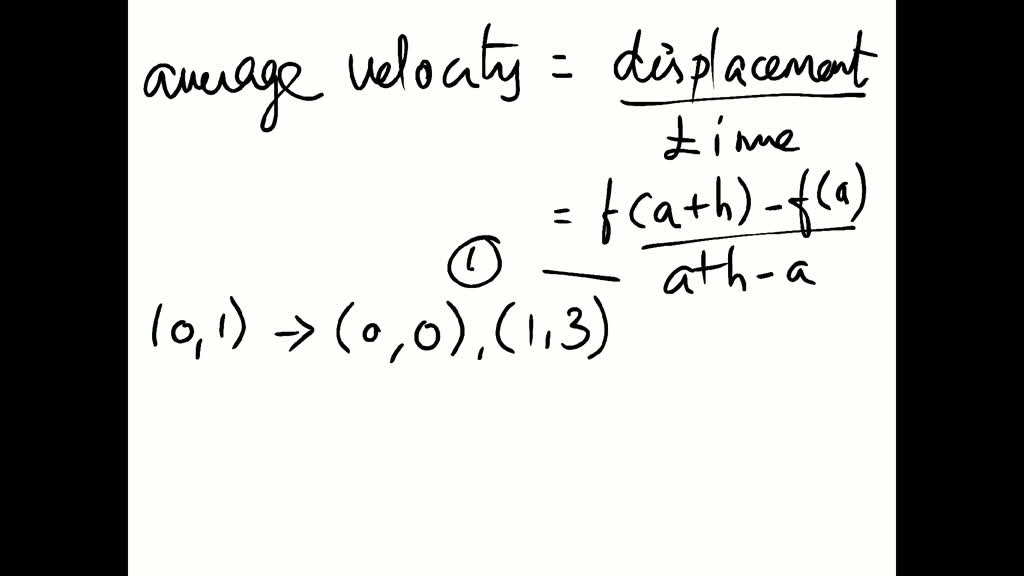 average velocity = displacement
time
= f(a+h) - f(a)
a+h - a
①
(0,1) → (0,0), (1,3)